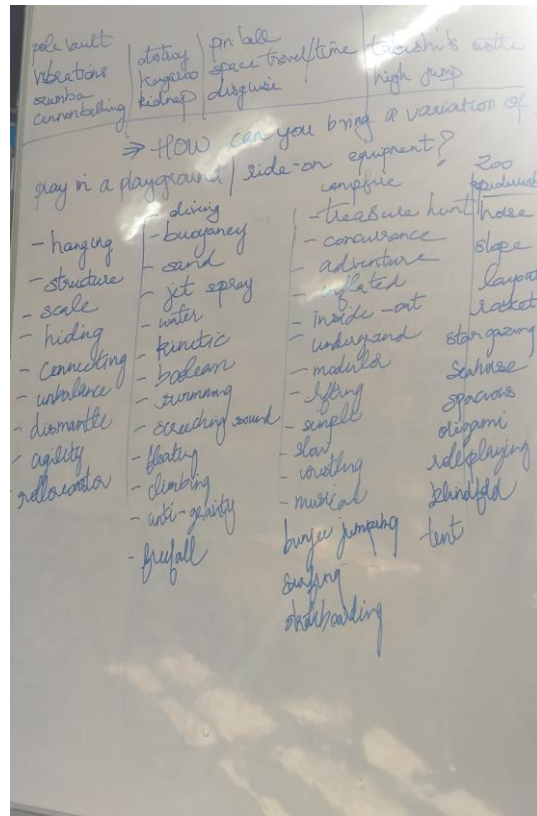 pole vault
vibrations
zumba
cannonballing
destroy
kangaroo
kidnap
pin ball
space travel/time
disguise
takeshi's castle
high jump
⇒ HOW can you bring a variation of
play in a playground / ride-on equipment?
- hanging
- structure
- scale
- hiding
- connecting
- unbalance
- dismantle
- agility
- diving
- buoyancy
- sand
- jet spray
- water
- kinetic
- boolean
- swimming
- screeching sound
- floating
- climbing
- anti-gravity
- freefall
campfire
- treasure hunt
- concurrance
- adventure
- inflated
- inside-out
- underground
- modular
- lifting
- simple
- slow
- wrestling
- musical
bungee jumping
surfing
skateboarding
zoo
pendulum
horse
slope
layout
rocket
star gazing
seahorse
spacious
origami
roleplaying
blindfold
tent